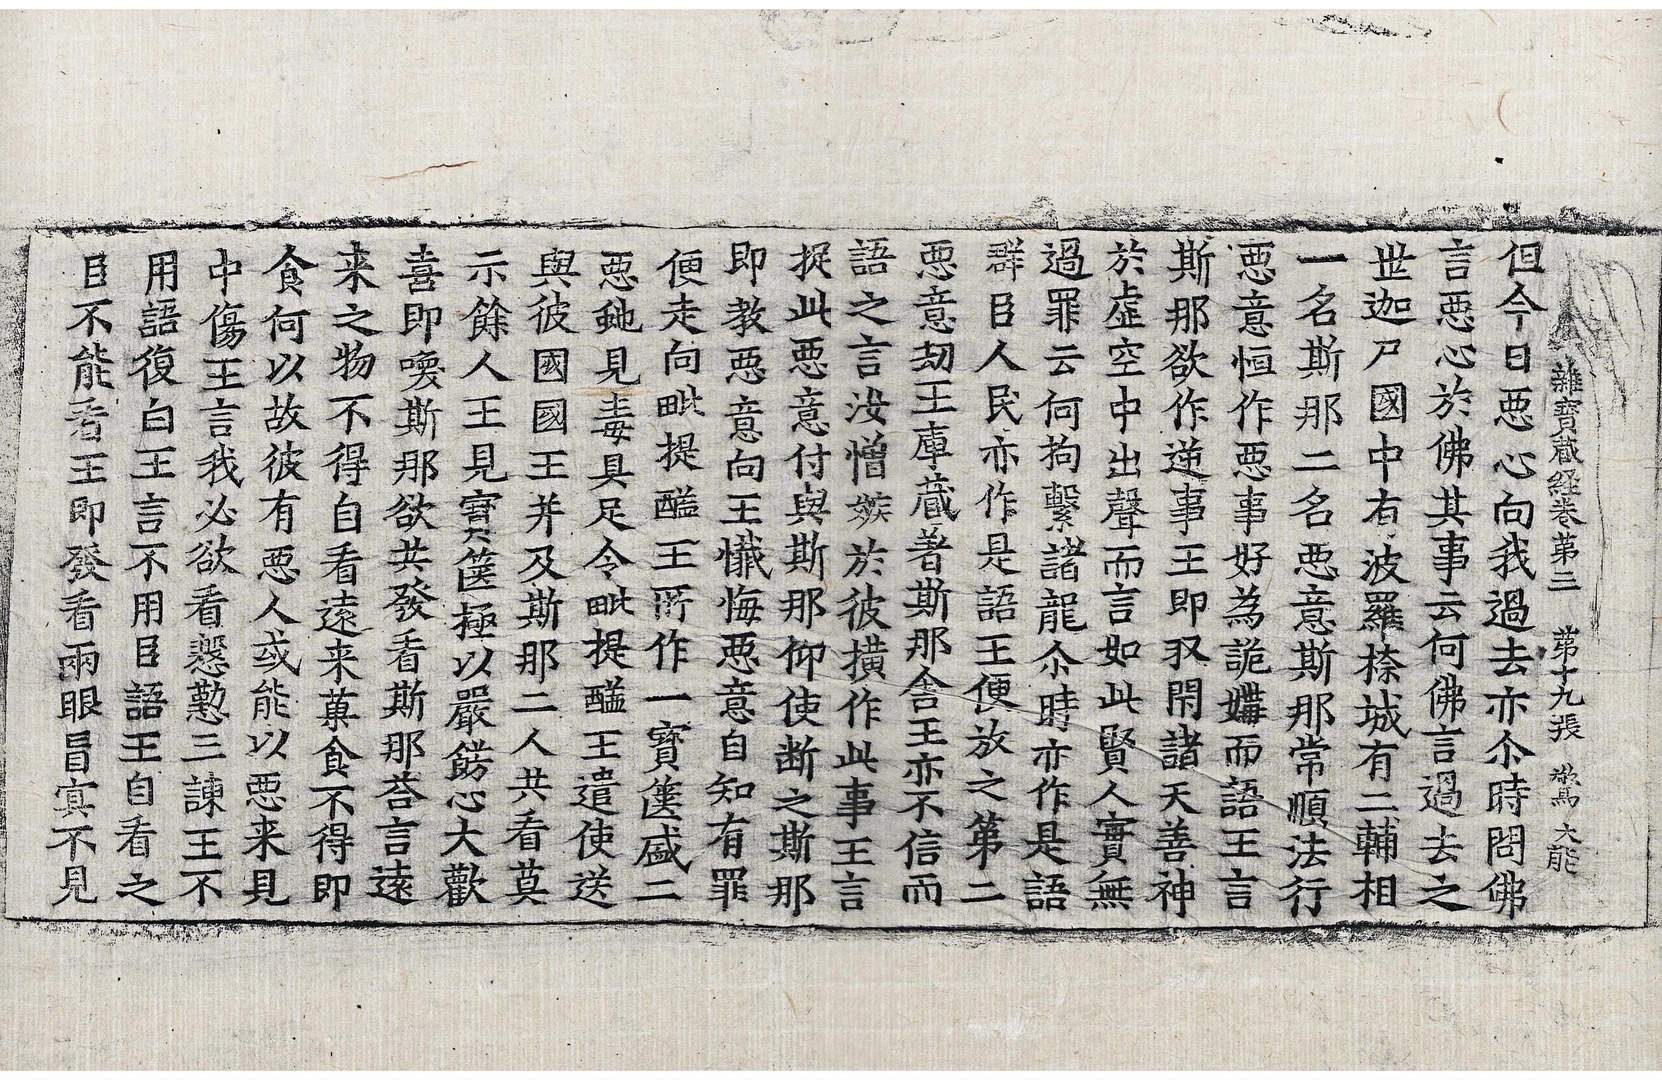 雜寶藏経卷第三 第十九張 鷟 大能
但今日惡心向我過去亦尒時問佛
言惡心於佛其事云何佛言過去之
世迦尸國中有波羅㮈城有二輔相
一名斯那二名惡意斯那常順法行
惡意恒作惡事好為詭媾而語王言
斯那欲作逆事王即収閇諸天善神
於虛空中出聲而言如此賢人實無
過罪云何拘繫諸龍尒時亦作是語
群臣人民亦作是語王便放之第二
惡意刼王庫蔵著斯那舎王亦不信而
語之言汝憎嫉於彼橫作此事王言
捉此惡意付與斯那仰使断之斯那
即教惡意向王懺悔惡意自知有罪
便走向毗提醯王所作一寶篋盛二
惡虵見毒具足令毗提醯王遣使送
與彼國國王并及斯那二人共看莫
示餘人王見寶篋極以嚴餝心大歡
喜即喚斯那欲共發看斯那荅言遠
来之物不得自看遠来菓食不得即
食何以故彼有惡人或能以惡来見
中傷王言我必欲看慇懃三諫王不
用語復白王言不用臣語王自看之
臣不能看王即發看兩眼盲冥不見